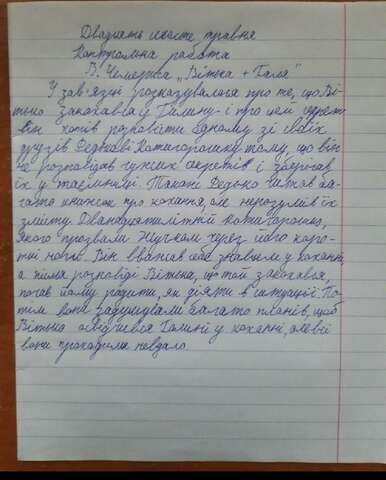 Двадцять шосте травня
Контрольна работа
В. Чемерис „Вітька + Галя"
У зав'язці розказувалося про те, що Ві-
тько закохався у Галину і про цей секрет
він хотів розповісти одному зі своїх
друзів Федькові Котигорошку тому, що він
не розповідав чужих секретів і зберігав
їх у таємниці. Також Федько читав ба-
гато книжок про кохання, але не розумів їх
змісту. Дванадцятилітній Котигорошко,
якого прозвали Жучком через його коро-
ткі ноги. Він вважав себе знавцем у коханні,
а після розповіді Вітька, що той закохався,
почав йому радити, як діяти в ситуації. По-
тім вони задумували багато планів, щоб
Вітько освідчився Галині у коханні, але всі
вони проходили невдало.